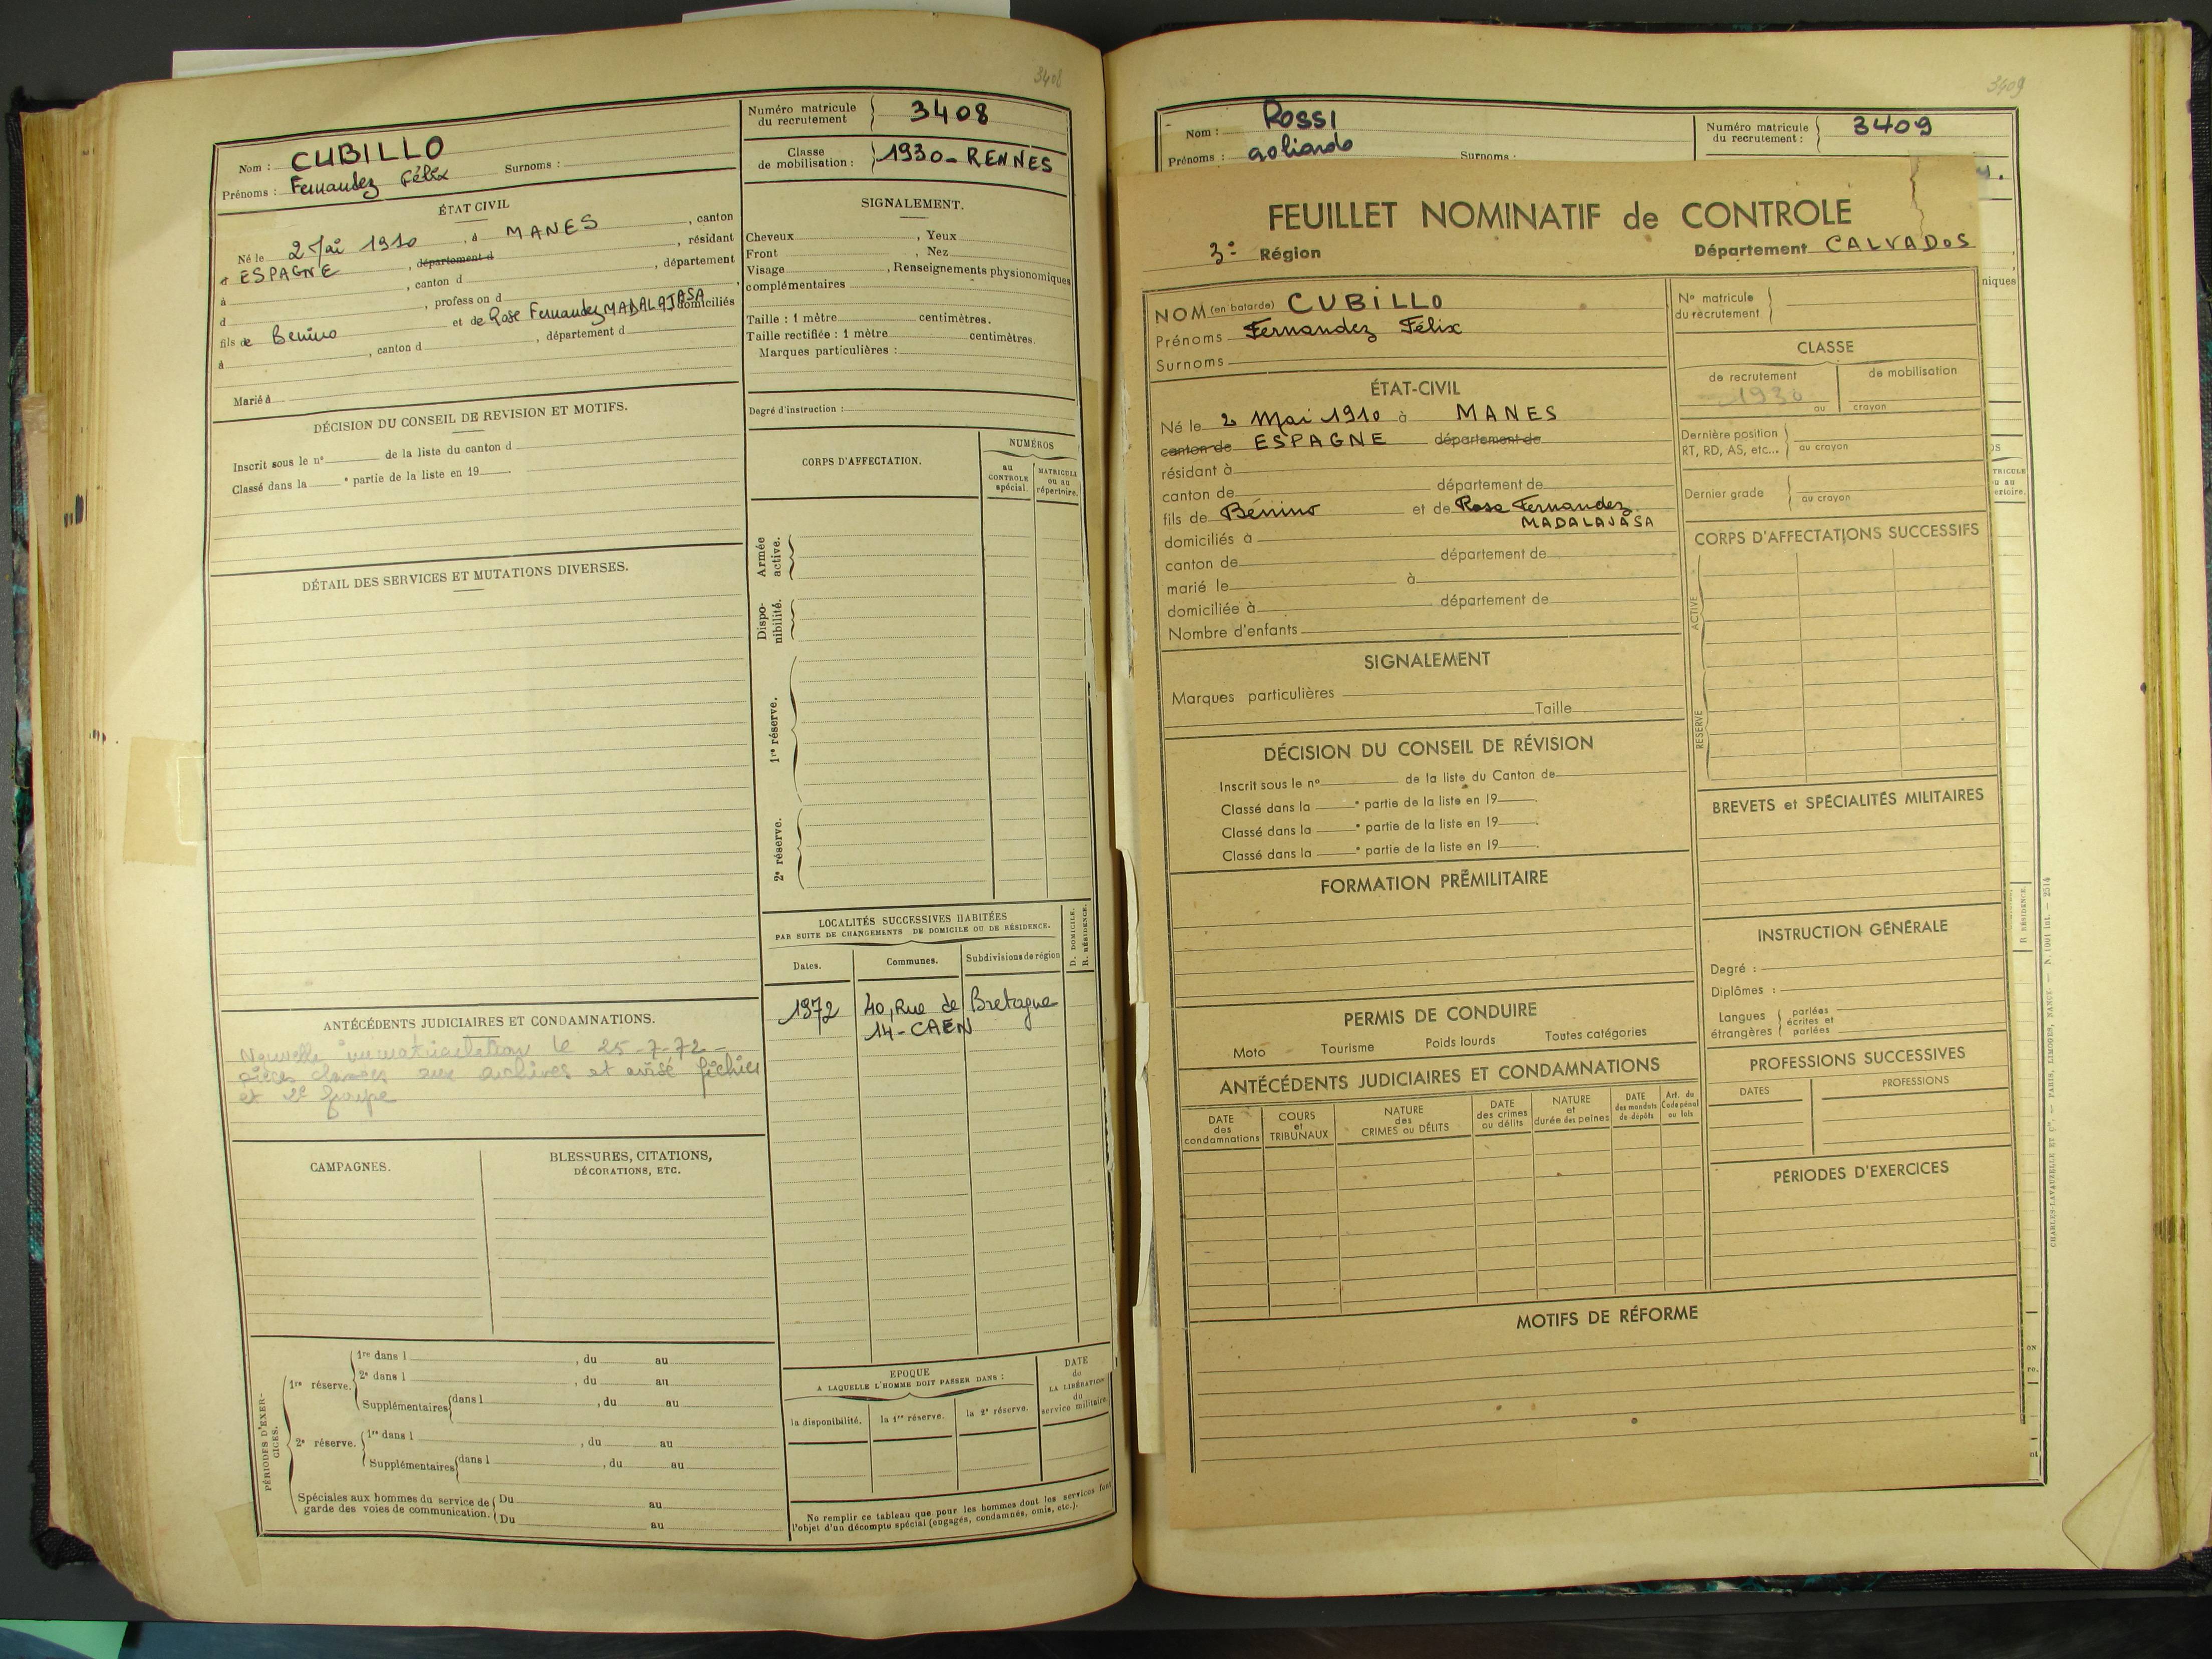 3408
Nom : CUBILLO
Prénoms : Fernandez Félix Surnoms :
ÉTAT CIVIL
Né le 2 Mai 1910, à MANES, canton
d ESPAGNE, département d , résidant
à , canton d , département
d , profession d ,
fils de Benino et de Rose Fernandez MADALAJASA domiciliés
à , canton d , département d
Marié à
DÉCISION DU CONSEIL DE REVISION ET MOTIFS.
Inscrit sous le n° de la liste du canton d
Classé dans la e partie de la liste en 19 .
DÉTAIL DES SERVICES ET MUTATIONS DIVERSES.
ANTÉCÉDENTS JUDICIAIRES ET CONDAMNATIONS.
Nouvelle immatriculation le 25-7-72 -
pièces classées aux archives et avisé fichier
et 2e groupe
CAMPAGNES.
BLESSURES, CITATIONS,
DÉCORATIONS, ETC.
PÉRIODES D'EXER-
CICES.
1re réserve.
1re dans l , du au
2e dans l , du au
Supplémentaires dans l , du au
2e réserve.
1re dans l , du au
Supplémentaires dans l , du au
Spéciales aux hommes du service de
garde des voies de communication.
Du au
Du au
Numéro matricule
du recrutement
3408
Classe
de mobilisation :
1930 - RENNES
SIGNALEMENT.
Cheveux , Yeux
Front , Nez
Visage , Renseignements physionomiques
complémentaires
Taille : 1 mètre centimètres.
Taille rectifiée : 1 mètre centimètres.
Marques particulières :
Degré d'instruction :
CORPS D'AFFECTATION.
NUMÉROS
au
CONTROLE
spécial.
MATRICULE
ou au
répertoire.
Armée
active.
Dispo-
nibilité.
1re réserve.
2e réserve.
LOCALITÉS SUCCESSIVES HABITÉES
PAR SUITE DE CHANGEMENTS DE DOMICILE OU DE RÉSIDENCE.
Dates.
Communes.
Subdivisions de région
D. DOMICILE.
R. RÉSIDENCE.
1972 40, Rue de Bretagne
14 - CAEN
EPOQUE
A LAQUELLE L'HOMME DOIT PASSER DANS :
la disponibilité.
la 1re réserve.
la 2e réserve.
DATE
de
LA LIBÉRATION
du
service militaire.
No remplir ce tableau que pour les hommes dont les services font
l'objet d'un décompte spécial (engagés, condamnés, omis, etc.).
3409
Nom : ROSSI
Prénoms : Surnoms :
Numéro matricule
du recrutement :
3409
niques
TRICULE
ou au
ertoire.
R RÉSIDENCE.
CHARLES-LAVAUZELLE ET Cie. — PARIS, LIMOGES, NANCY.
FEUILLET NOMINATIF de CONTROLE
3e Région Département CALVADOS
NOM (en batarde) CUBILLO
Prénoms Fernandez Félix
Surnoms
ÉTAT-CIVIL
Né le 2 Mai 1910 à MANES
canton de ESPAGNE département de
résidant à
canton de département de
fils de Bénino et de Rosa Fernandez
MADALAJASA
domiciliés à
canton de département de
marié le à
domiciliée à département de
Nombre d'enfants
SIGNALEMENT
Marques particulières
Taille
DÉCISION DU CONSEIL DE RÉVISION
Inscrit sous le n° de la liste du Canton de
Classé dans la e partie de la liste en 19 .
Classé dans la e partie de la liste en 19 .
Classé dans la e partie de la liste en 19 .
FORMATION PRÉMILITAIRE
PERMIS DE CONDUIRE
Moto Tourisme Poids lourds Toutes catégories
ANTÉCÉDENTS JUDICIAIRES ET CONDAMNATIONS
DATE
des
condamnations
COURS
et
TRIBUNAUX
NATURE
des
CRIMES ou DÉLITS
DATE
des crimes
ou délits
NATURE
et
durée des peines
DATE
des mandats
de dépôts
Art. du
Code pénal
ou lois
N° matricule
du recrutement
CLASSE
de recrutement
de mobilisation
1930
au crayon
Dernière position
RT, RD, AS, etc...
au crayon
Dernier grade
au crayon
CORPS D'AFFECTATIONS SUCCESSIFS
ACTIVE
RESERVE
BREVETS et SPÉCIALITÉS MILITAIRES
INSTRUCTION GÉNÉRALE
Degré :
Diplômes :
Langues
étrangères
parlées
écrites et
parlées
PROFESSIONS SUCCESSIVES
DATES PROFESSIONS
PÉRIODES D'EXERCICES
MOTIFS DE RÉFORME